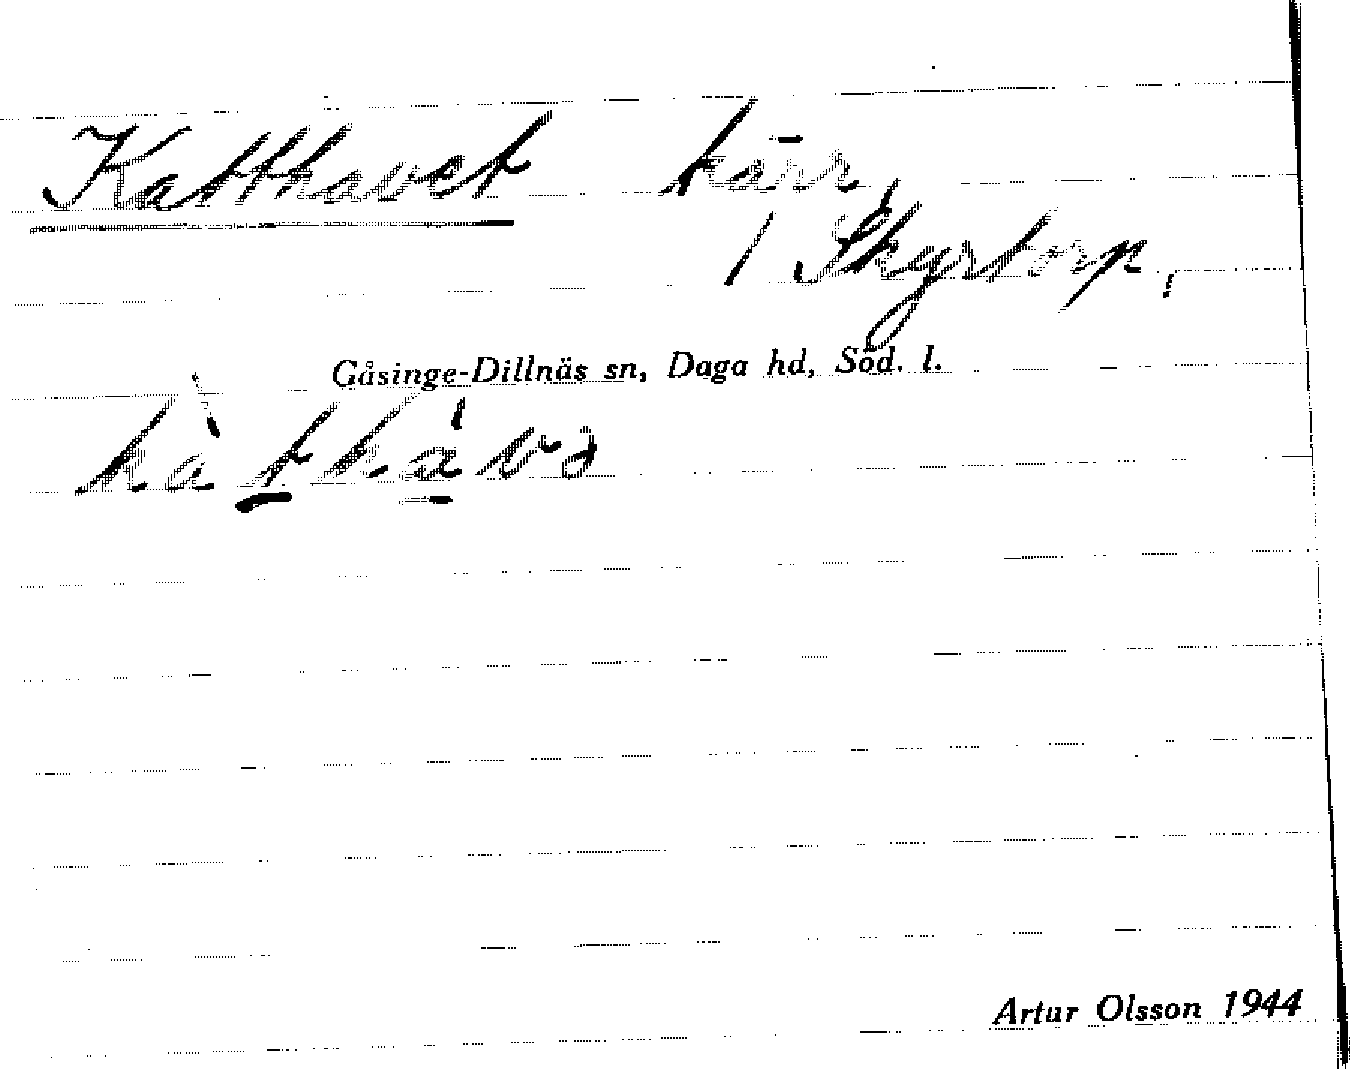 Katthavet kärr,
/ Skyrtorp,
Gåsinge-Dillnäs sn, Daga hd, Söd. l.
Artur Olsson 1944